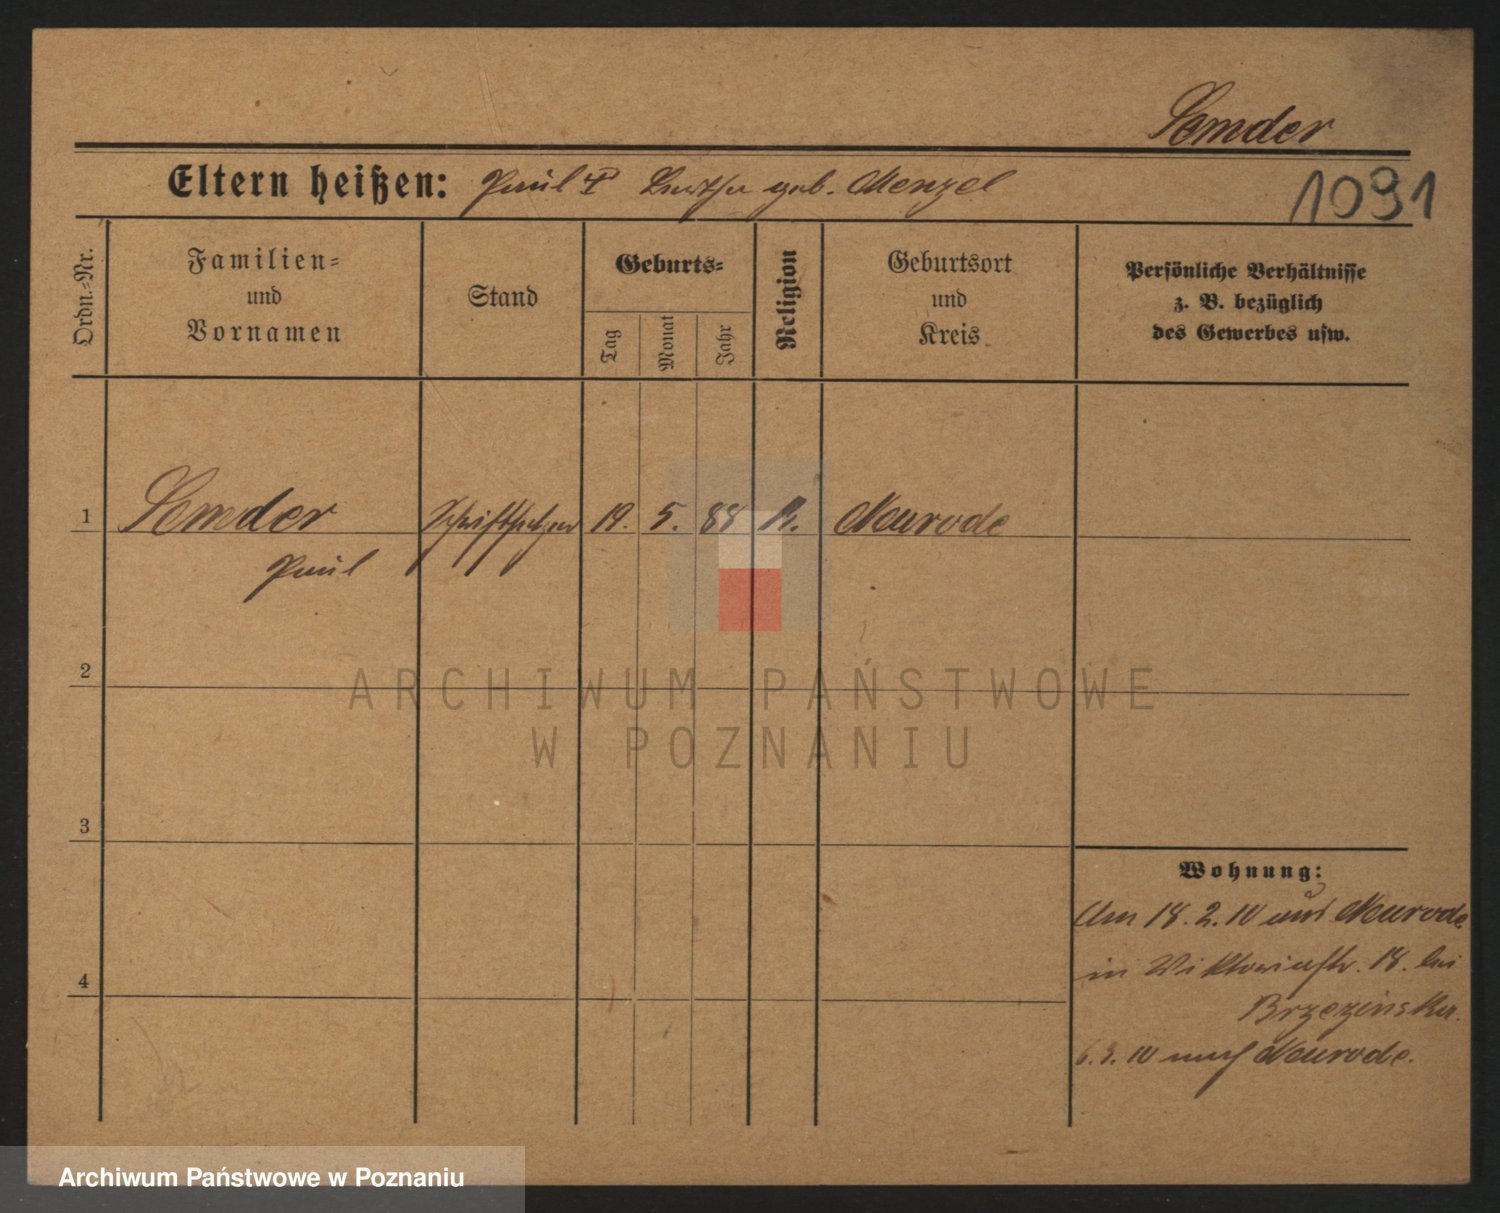 Semder
Eltern heißen: Paul geb. Menzel
1091
Ordn.-Nr.
Familien-
und
Vornamen
Stand
Geburts-
Tag
Monat
Jahr
Religion
Geburtsort
und
Kreis
Persönliche Verhältnisse
z. B. bezüglich
des Gewerbes usw.
1
Semder
Paul
Schriftsetzer
19. 5. 88
Neurode
2
3
4
Wohnung:
Am 18. 2. 10 aus Neurode
in Viktoriastr. 18. bei
Brzezinska.
6. 3. 10 nach Neurode.
ARCHIWUM PAŃSTWOWE
W POZNANIU
Archiwum Państwowe w Poznaniu